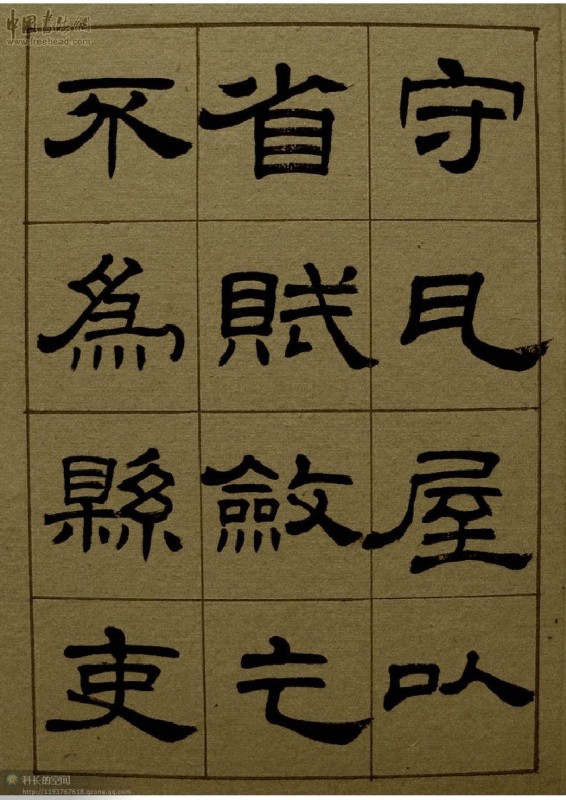 中国书法网
www.freehead.com
守屋以
省賦斂亡
不爲縣吏
科长的空间
http://1193767618.qzone.qq.com